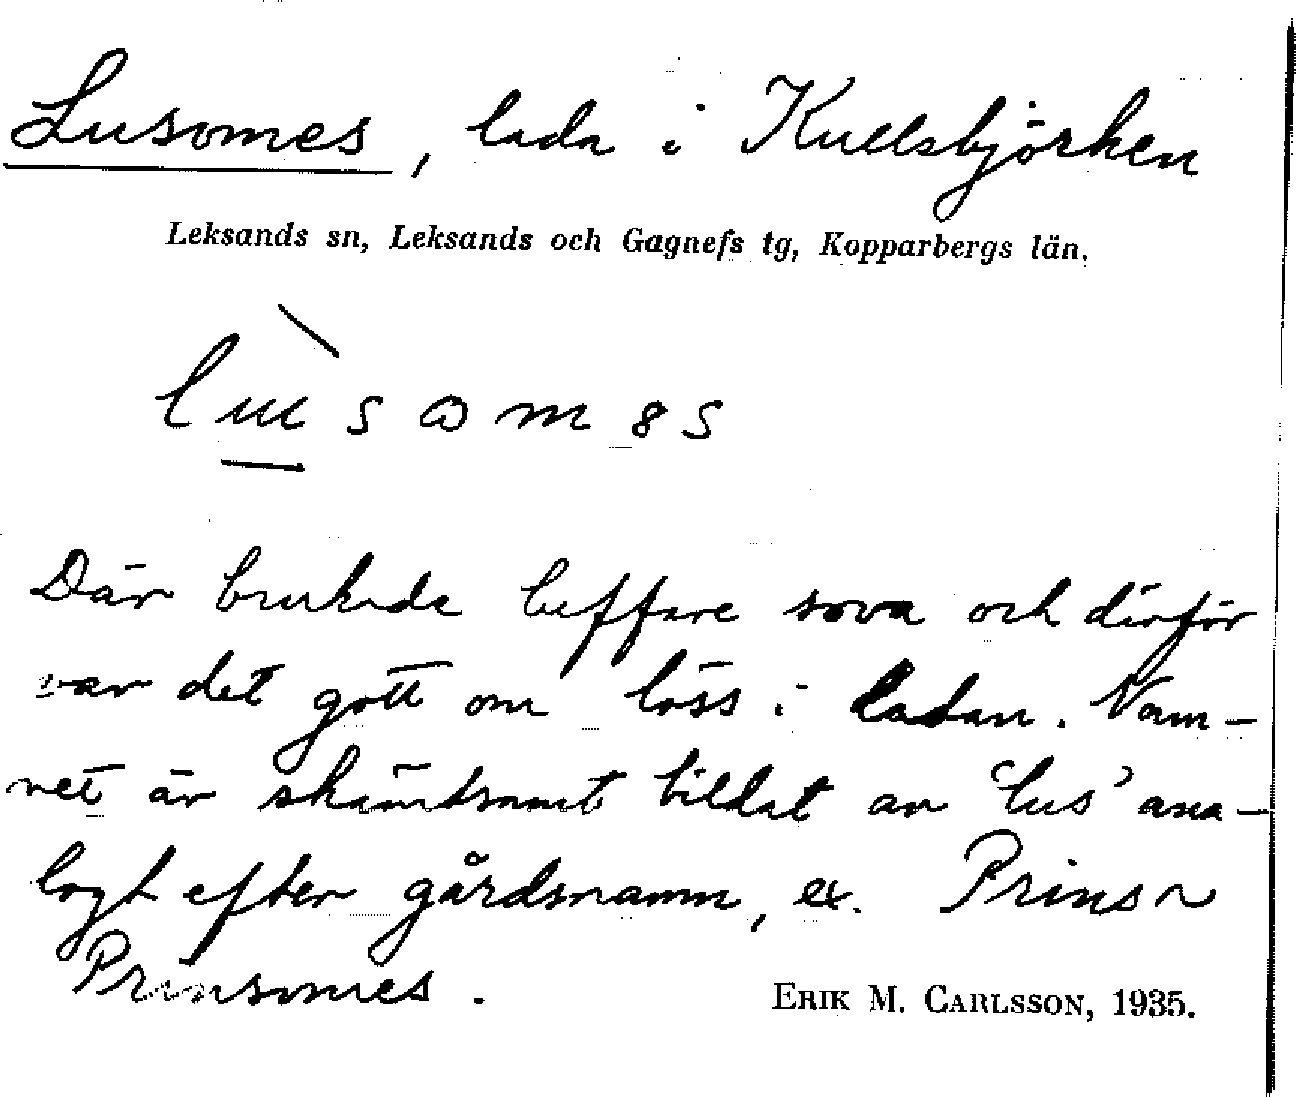 Lusomes, lada i Kullsbjörken
Leksands sn, Leksands och Gagnefs tg, Kopparbergs län.
Där brukade luffare sova och därför
var det gott om löss i ladan. Nam-
net är skämtsamt bildat av 'lus' ana-
logt efter gårdsnamn, ex. Prins ~
Prinsomes.
ERIK M. CARLSSON, 1935.